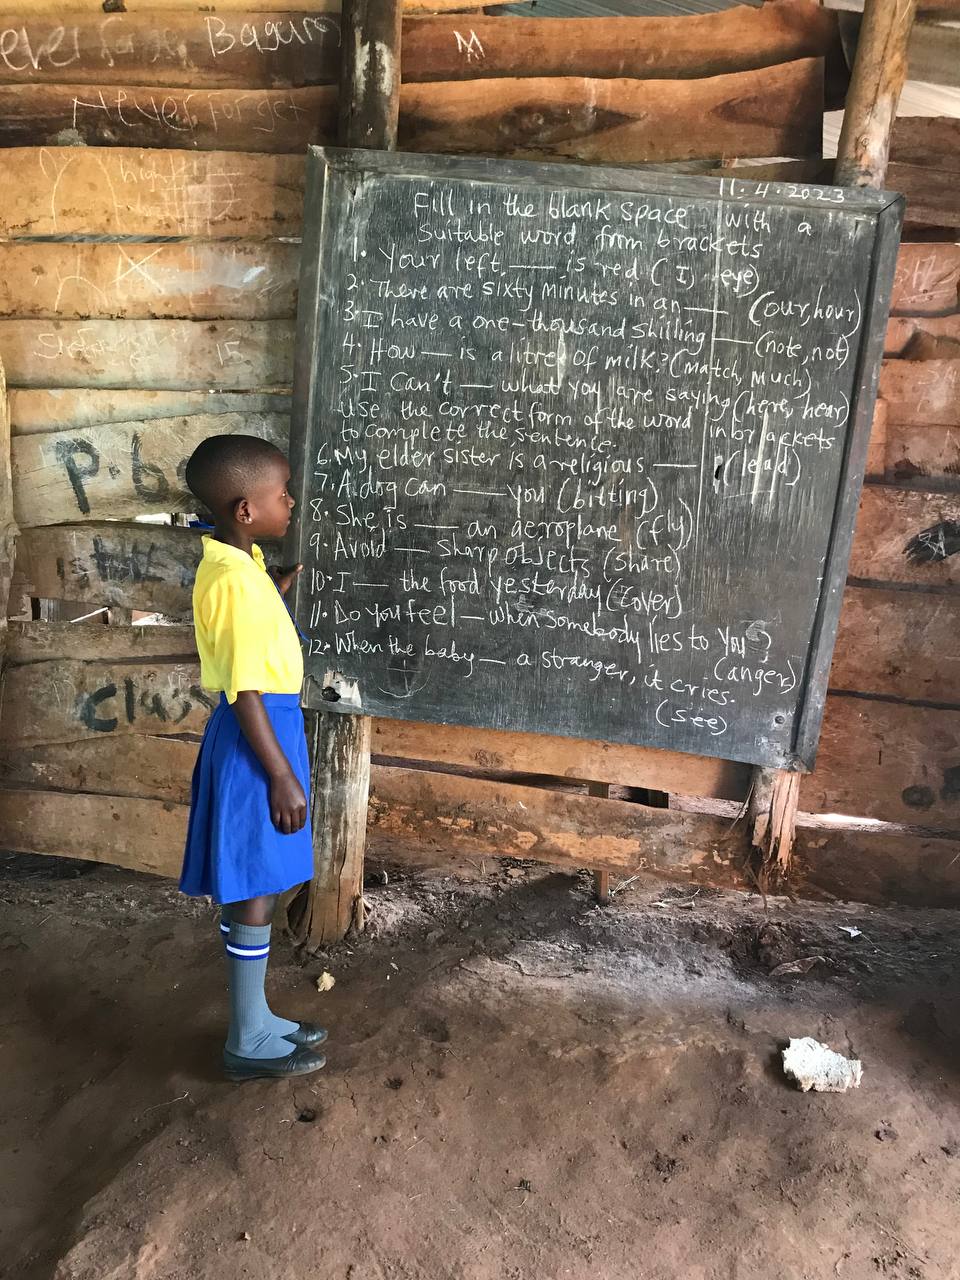 ever Bagum
M
Never Forget
high
15
P.6
Class
11.4.2023
Fill in the blank space with a
Suitable word from brackets
1. Your left ___ is red (I, eye)
2. There are sixty minutes in an ___ (our, hour)
3. I have a one-thousand shilling ___ (note, not)
4. How ___ is a litre of milk? (match, much)
5. I can't ___ what you are saying (here, hear)
Use the correct form of the word in brackets
to complete the sentence.
6. My elder sister is a religious ___ (lead)
7. A dog can ___ you (bitting)
8. She is ___ an aeroplane (fly)
9. Avoid ___ sharp objects (share)
10. I ___ the food yesterday (cover)
11. Do you feel ___ when somebody lies to you?
(anger)
12. When the baby ___ a stranger, it cries.
(see)